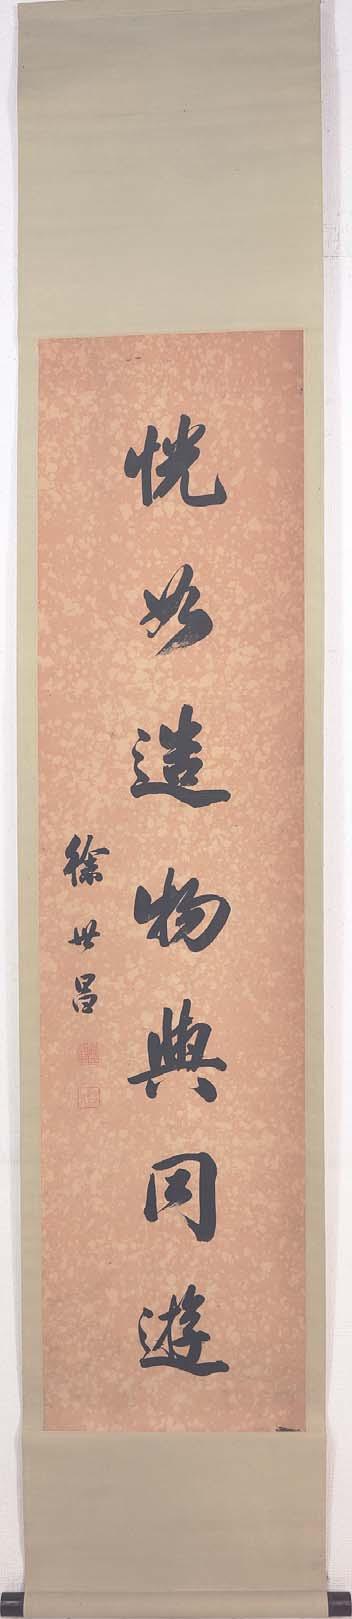 恍如造物與同遊
徐世昌